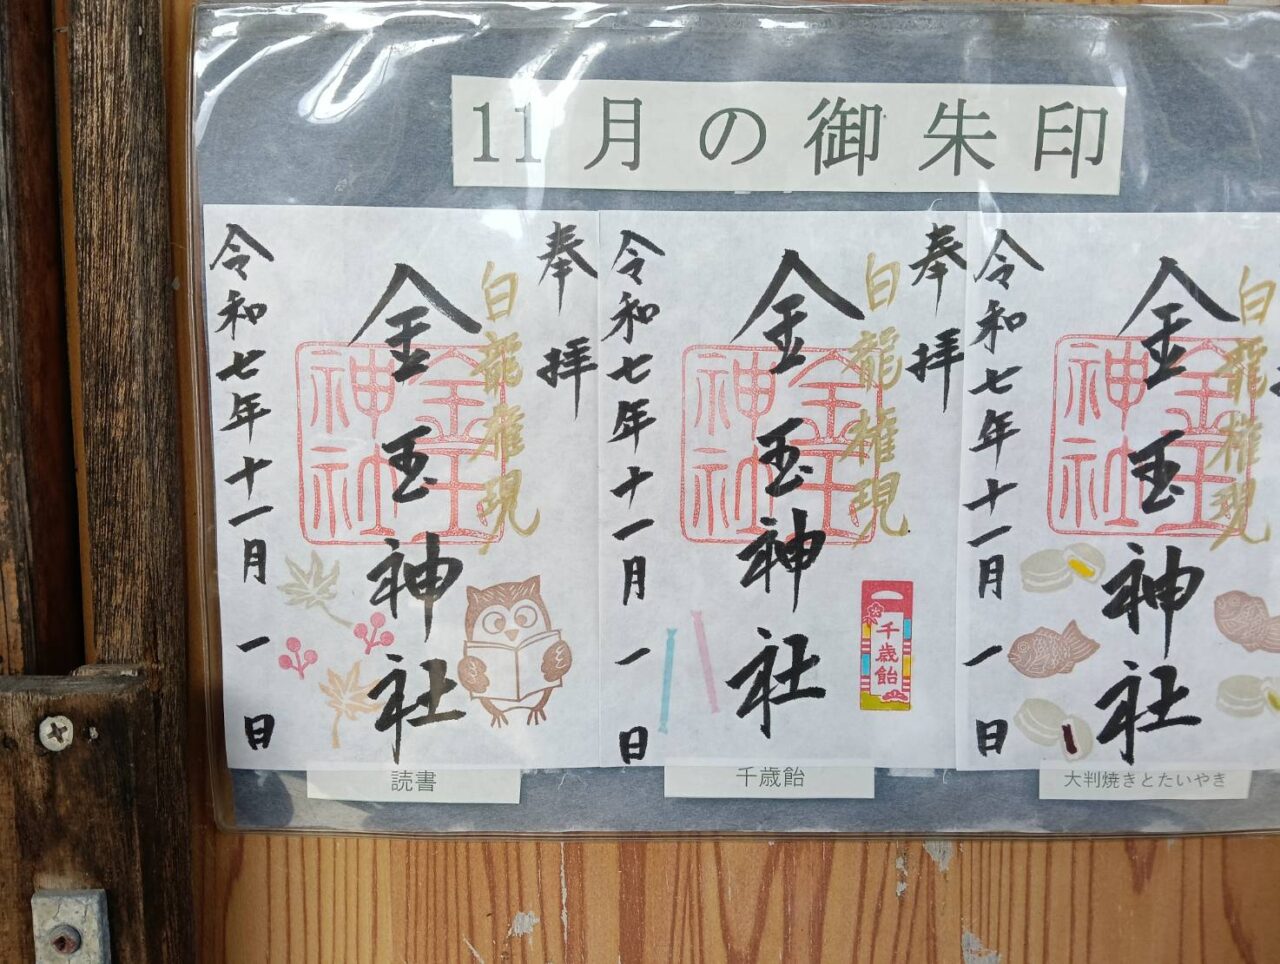 11月の御朱印
奉拝
白龍権現
金玉神社
金玉神社
令和七年十一月一日
読書
奉拝
白龍権現
金玉神社
金玉神社
令和七年十一月一日
千歳飴
千歳飴
白龍権現
金玉神社
金玉神社
令和七年十一月一日
大判焼きとたいやき